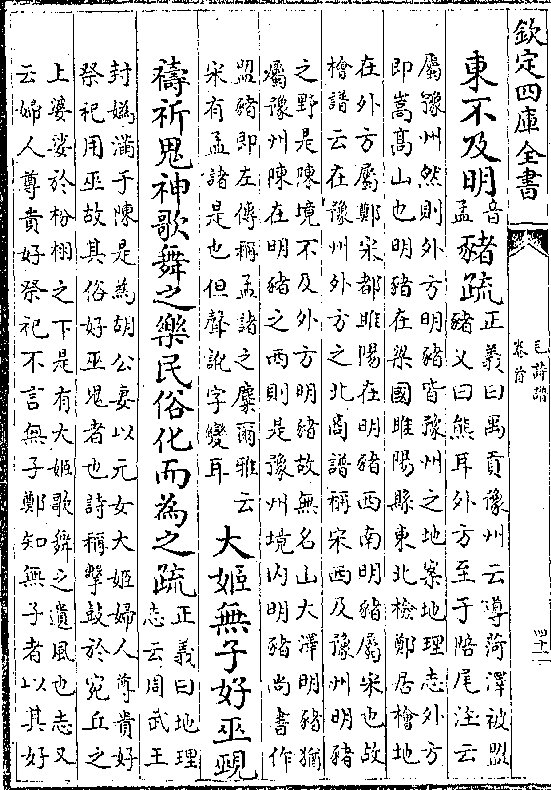 欽定四庫全書
毛詩譜
卷首
東不及明音孟豬疏正義曰禹貢豫州云導菏澤被盟
豬又曰熊耳外方至于陪尾注云
屬豫州然則外方明豬皆豫州之地案地理志外方
即嵩髙山也明豬在梁國睢陽縣東北檢鄭居檜地
在外方屬鄭宋都睢陽在明豬西南明豬屬宋也故
檜譜云在豫州外方之北商譜稱宋西及豫州明豬
之野是陳境不及外方明豬故無名山大澤明豬猶
屬豫州陳在明豬之西則是豫州境内明豬尚書作
盟豬即左傳稱孟諸之麋爾雅云
宋有孟諸是也但聲訛字變耳
大姬無子好巫覡
禱祈鬼神歌舞之樂民俗化而為之疏正義曰地理
志云周武王
封媯滿于陳是為胡公妻以元女大姬婦人尊貴好
祭祀用巫故其俗好巫鬼者也詩稱擊鼓於宛丘之
上婆娑於枌栩之下是有大姬歌舞之遺風也志又
云婦人尊貴好祭祀不言無子鄭知無子者以其好